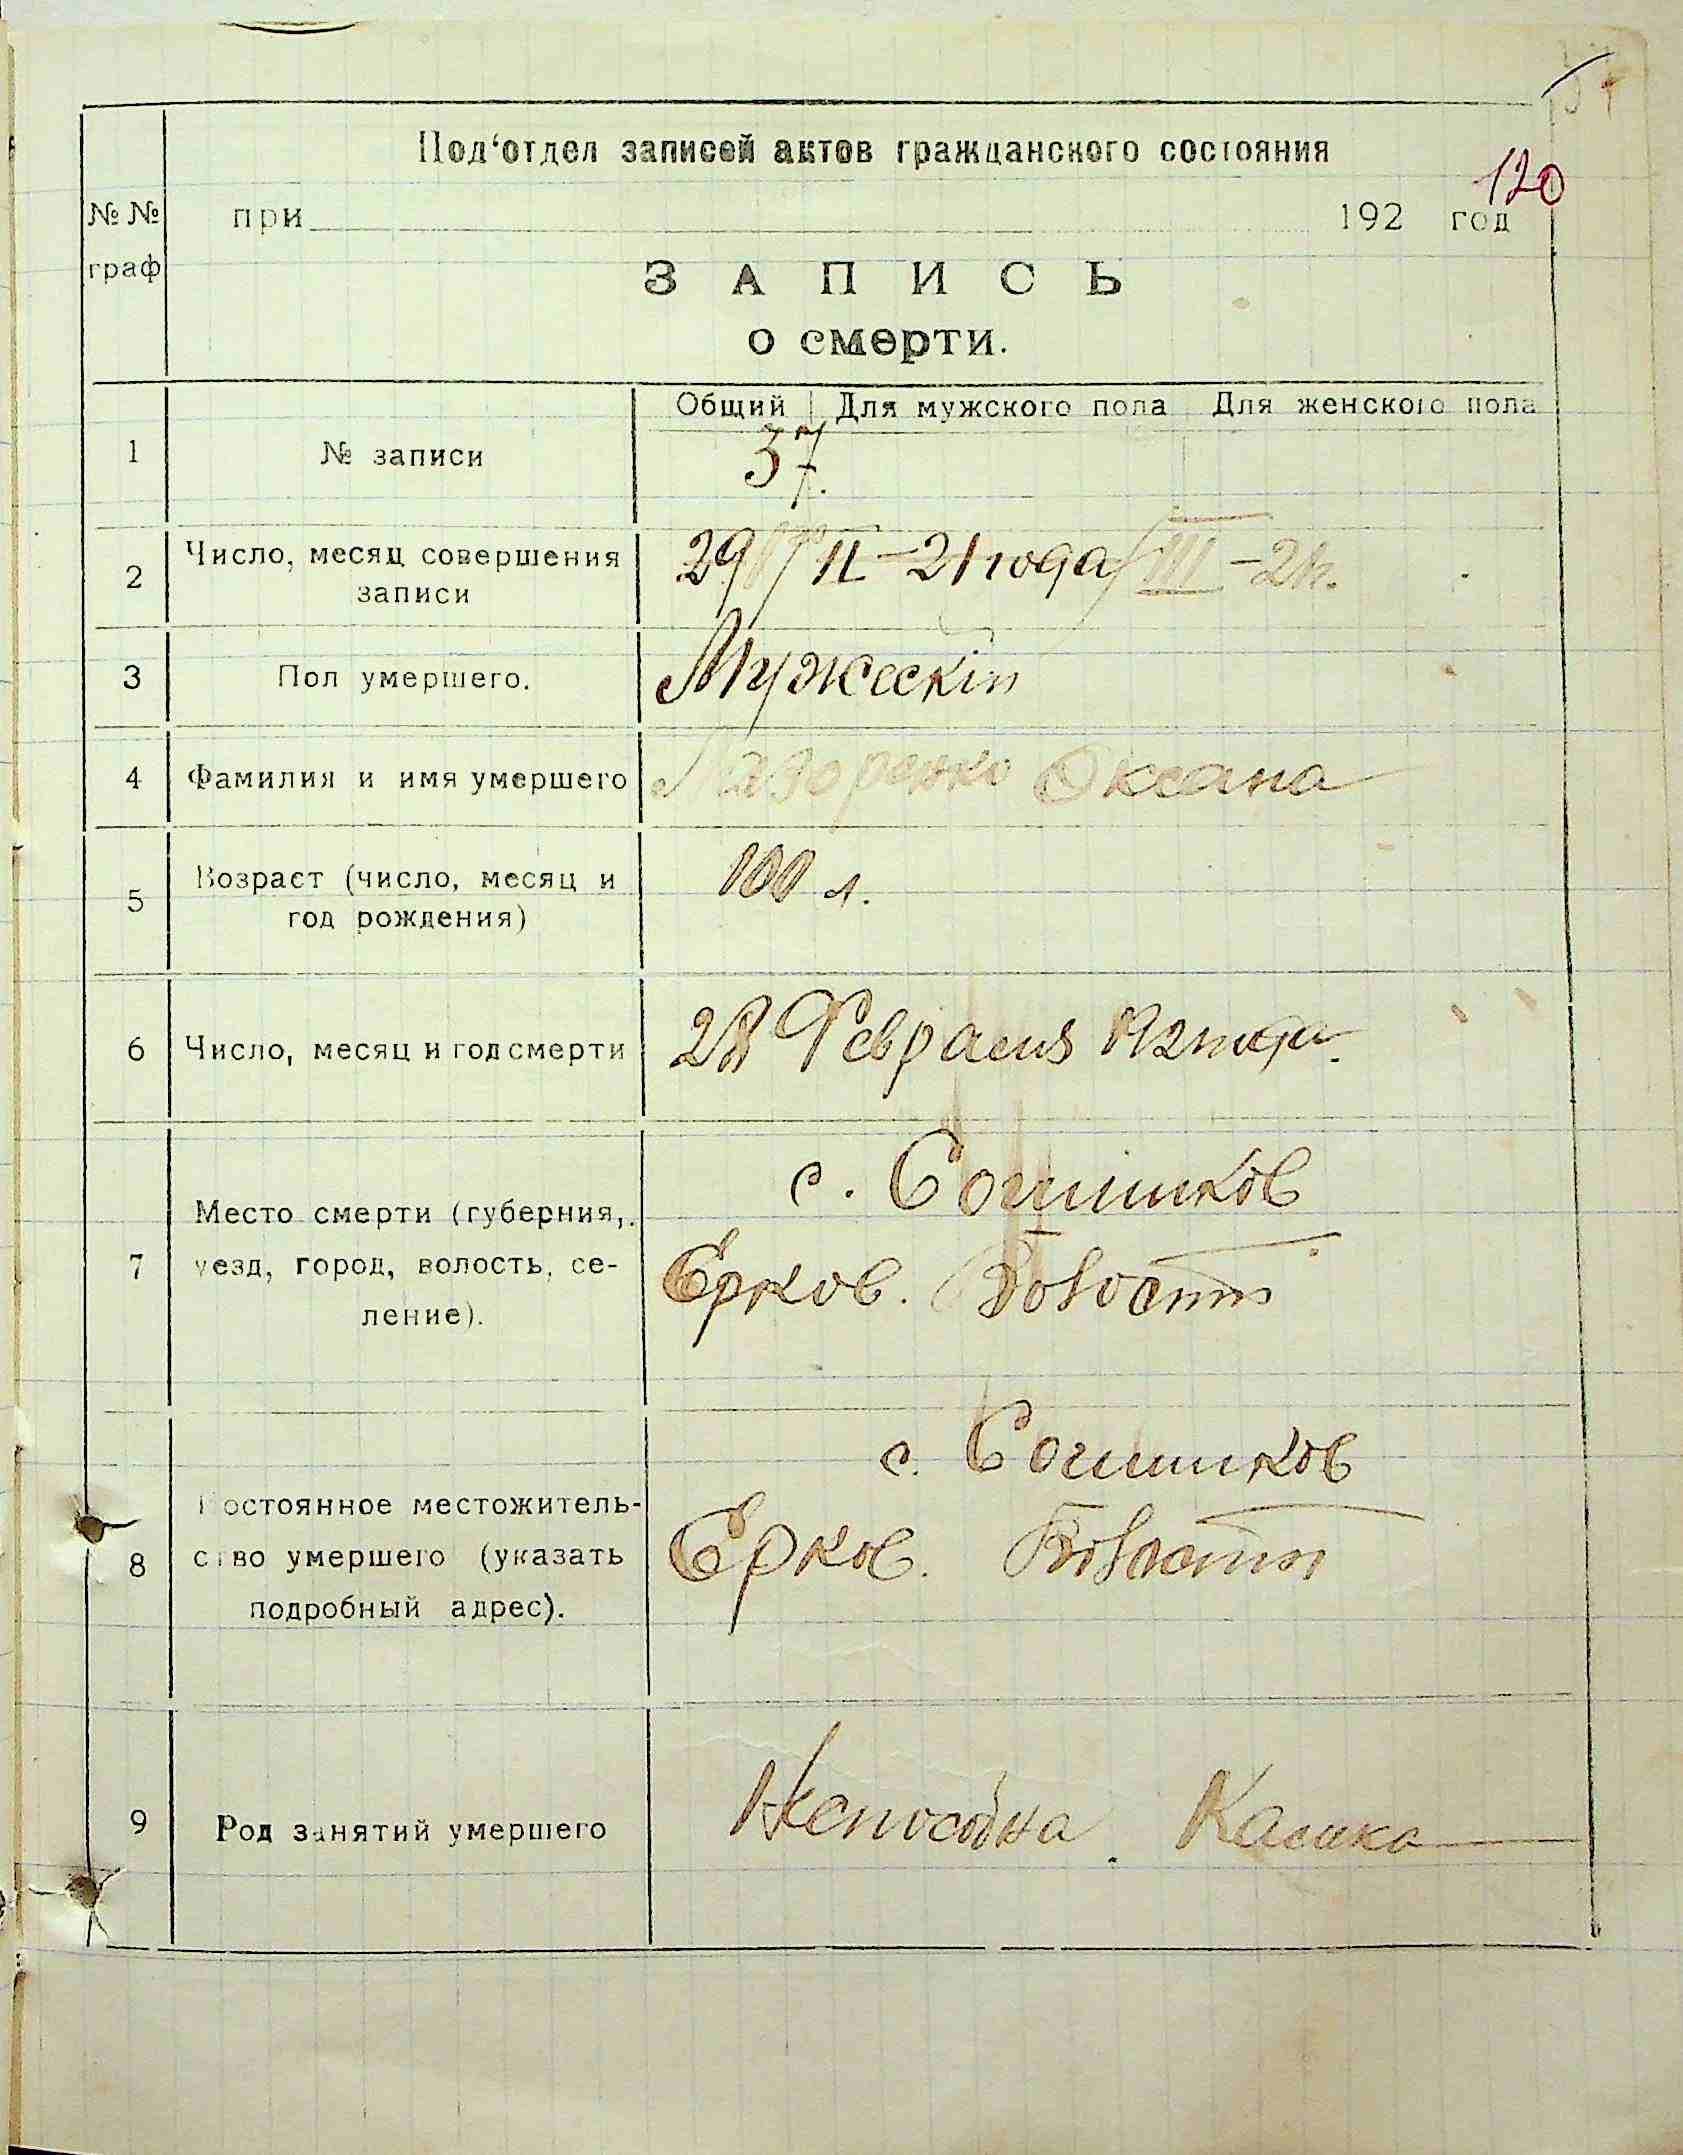 Под‘отдел записей актов гражданского состояния
120
№ № граф
при 192 год
ЗАПИСЬ
о смерти.
Общий Для мужского пола Для женского пола
1 № записи 37.
2 Число, месяц совершения записи 29 II – 21 года III – 21 г.
3 Пол умершего. Мужескій
4 Фамилия и имя умершего Оксана
5 Возраст (число, месяц и год рождения) 100 л.
6 Число, месяц и год смерти 28 Февраля 1921 года.
7 Место смерти (губерния, уезд, город, волость, се-
ление).
с. Сошников
Ерков. Волости
8 Постоянное местожитель-
ство умершего (указать
подробный адрес).
с. Сошников
Ерков. Волости
9 Род занятий умершего Неспособна Калика